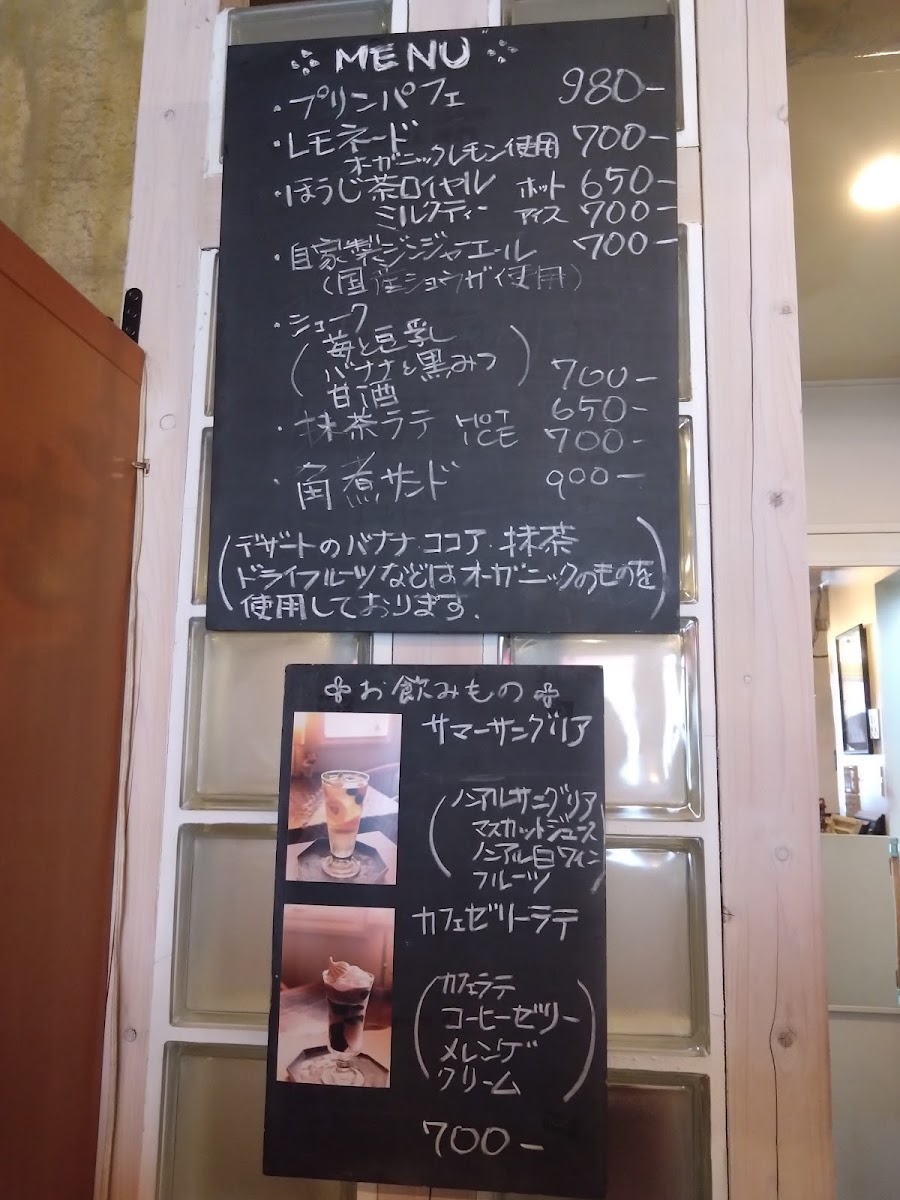 MENU
・プリンパフェ 980-
・レモネード 700-
オーガニックレモン使用
・ほうじ茶ロイヤル ホット 650-
ミルクティー アイス 700-
・自家製ジンジャーエール 700-
(国産ショウガ使用)
・シェーク
(苺と豆乳
バナナと黒みつ)
甘酒 700-
・抹茶ラテ HOT 650-
ICE 700-
・角煮サンド 900-
(デザートのバナナ.ココア.抹茶
ドライフルーツなどはオーガニックのものを
使用しております.)
お飲みもの
サマーサングリア
(ノンアルサングリア
マスカットジュース
ノンアル白ワイン
フルーツ)
カフェゼリーラテ
(カフェラテ
コーヒーゼリー
メレンゲ
クリーム)
700-